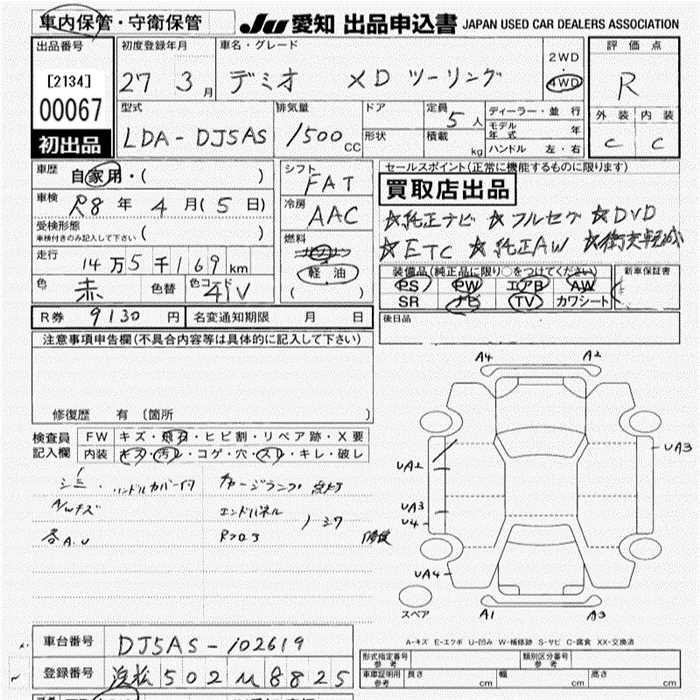 車内保管・守衛保管 JU 愛知 出品申込書 JAPAN USED CAR DEALERS ASSOCIATION
出品番号
[2134]
00067
初出品
初度登録年月
27 3 月
車名・グレード
デミオ XD ツーリング
2WD
・
4WD
評価点
R
外装 内装
C C
型式
LDA-DJ5AS
排気量
1500 CC
ドア
形状
定員
5 人
積載
kg
ディーラー・並行
モデル年式 年
ハンドル 左・右
車歴
自家用・( )
車検
R8 年 4 月 (5 日)
受検形態
車検付きのみ記入して下さい ( )
走行
14万5千169 km
色
赤
色替
色コード
41V
シフト
FAT
冷房
AAC
燃料
軽油
( )
セールスポイント(正常に機能するものに限ります)
買取店出品
☆純正ナビ ☆フルセグ ☆DVD
☆ETC ☆純正AW ☆衝突軽減
装備品(純正品に限り○をつけてください)
PS PW エアB AW
SR ナビ TV カワシート
新車保証書
R券 9130 円
名変通知期限 月 日
後日品
注意事項申告欄(不具合内容等は具体的に記入して下さい)
修復歴 有 〔箇所 〕
検査員記入欄
FW キズ・飛石・ヒビ割・リペア跡・X要
内装 キズ・汚レ・コゲ・穴・スレ・キレ・破レ
ハンドルカバー付
A/Wキズ
各A.U
エンドパネル
A4 A2
UA3
UA2
UA3
U4
UA4
A1 A3
スペア
A-キズ E-エクボ U-凹み W-補修跡 S-サビ C-腐食 XX-交換済
車台番号 DJ5AS-102619
登録番号 浜松 502 8825
型式指定番号 参考
類別区分番号 参考
車庫証明用 参考 長さ cm 幅 cm 高さ cm